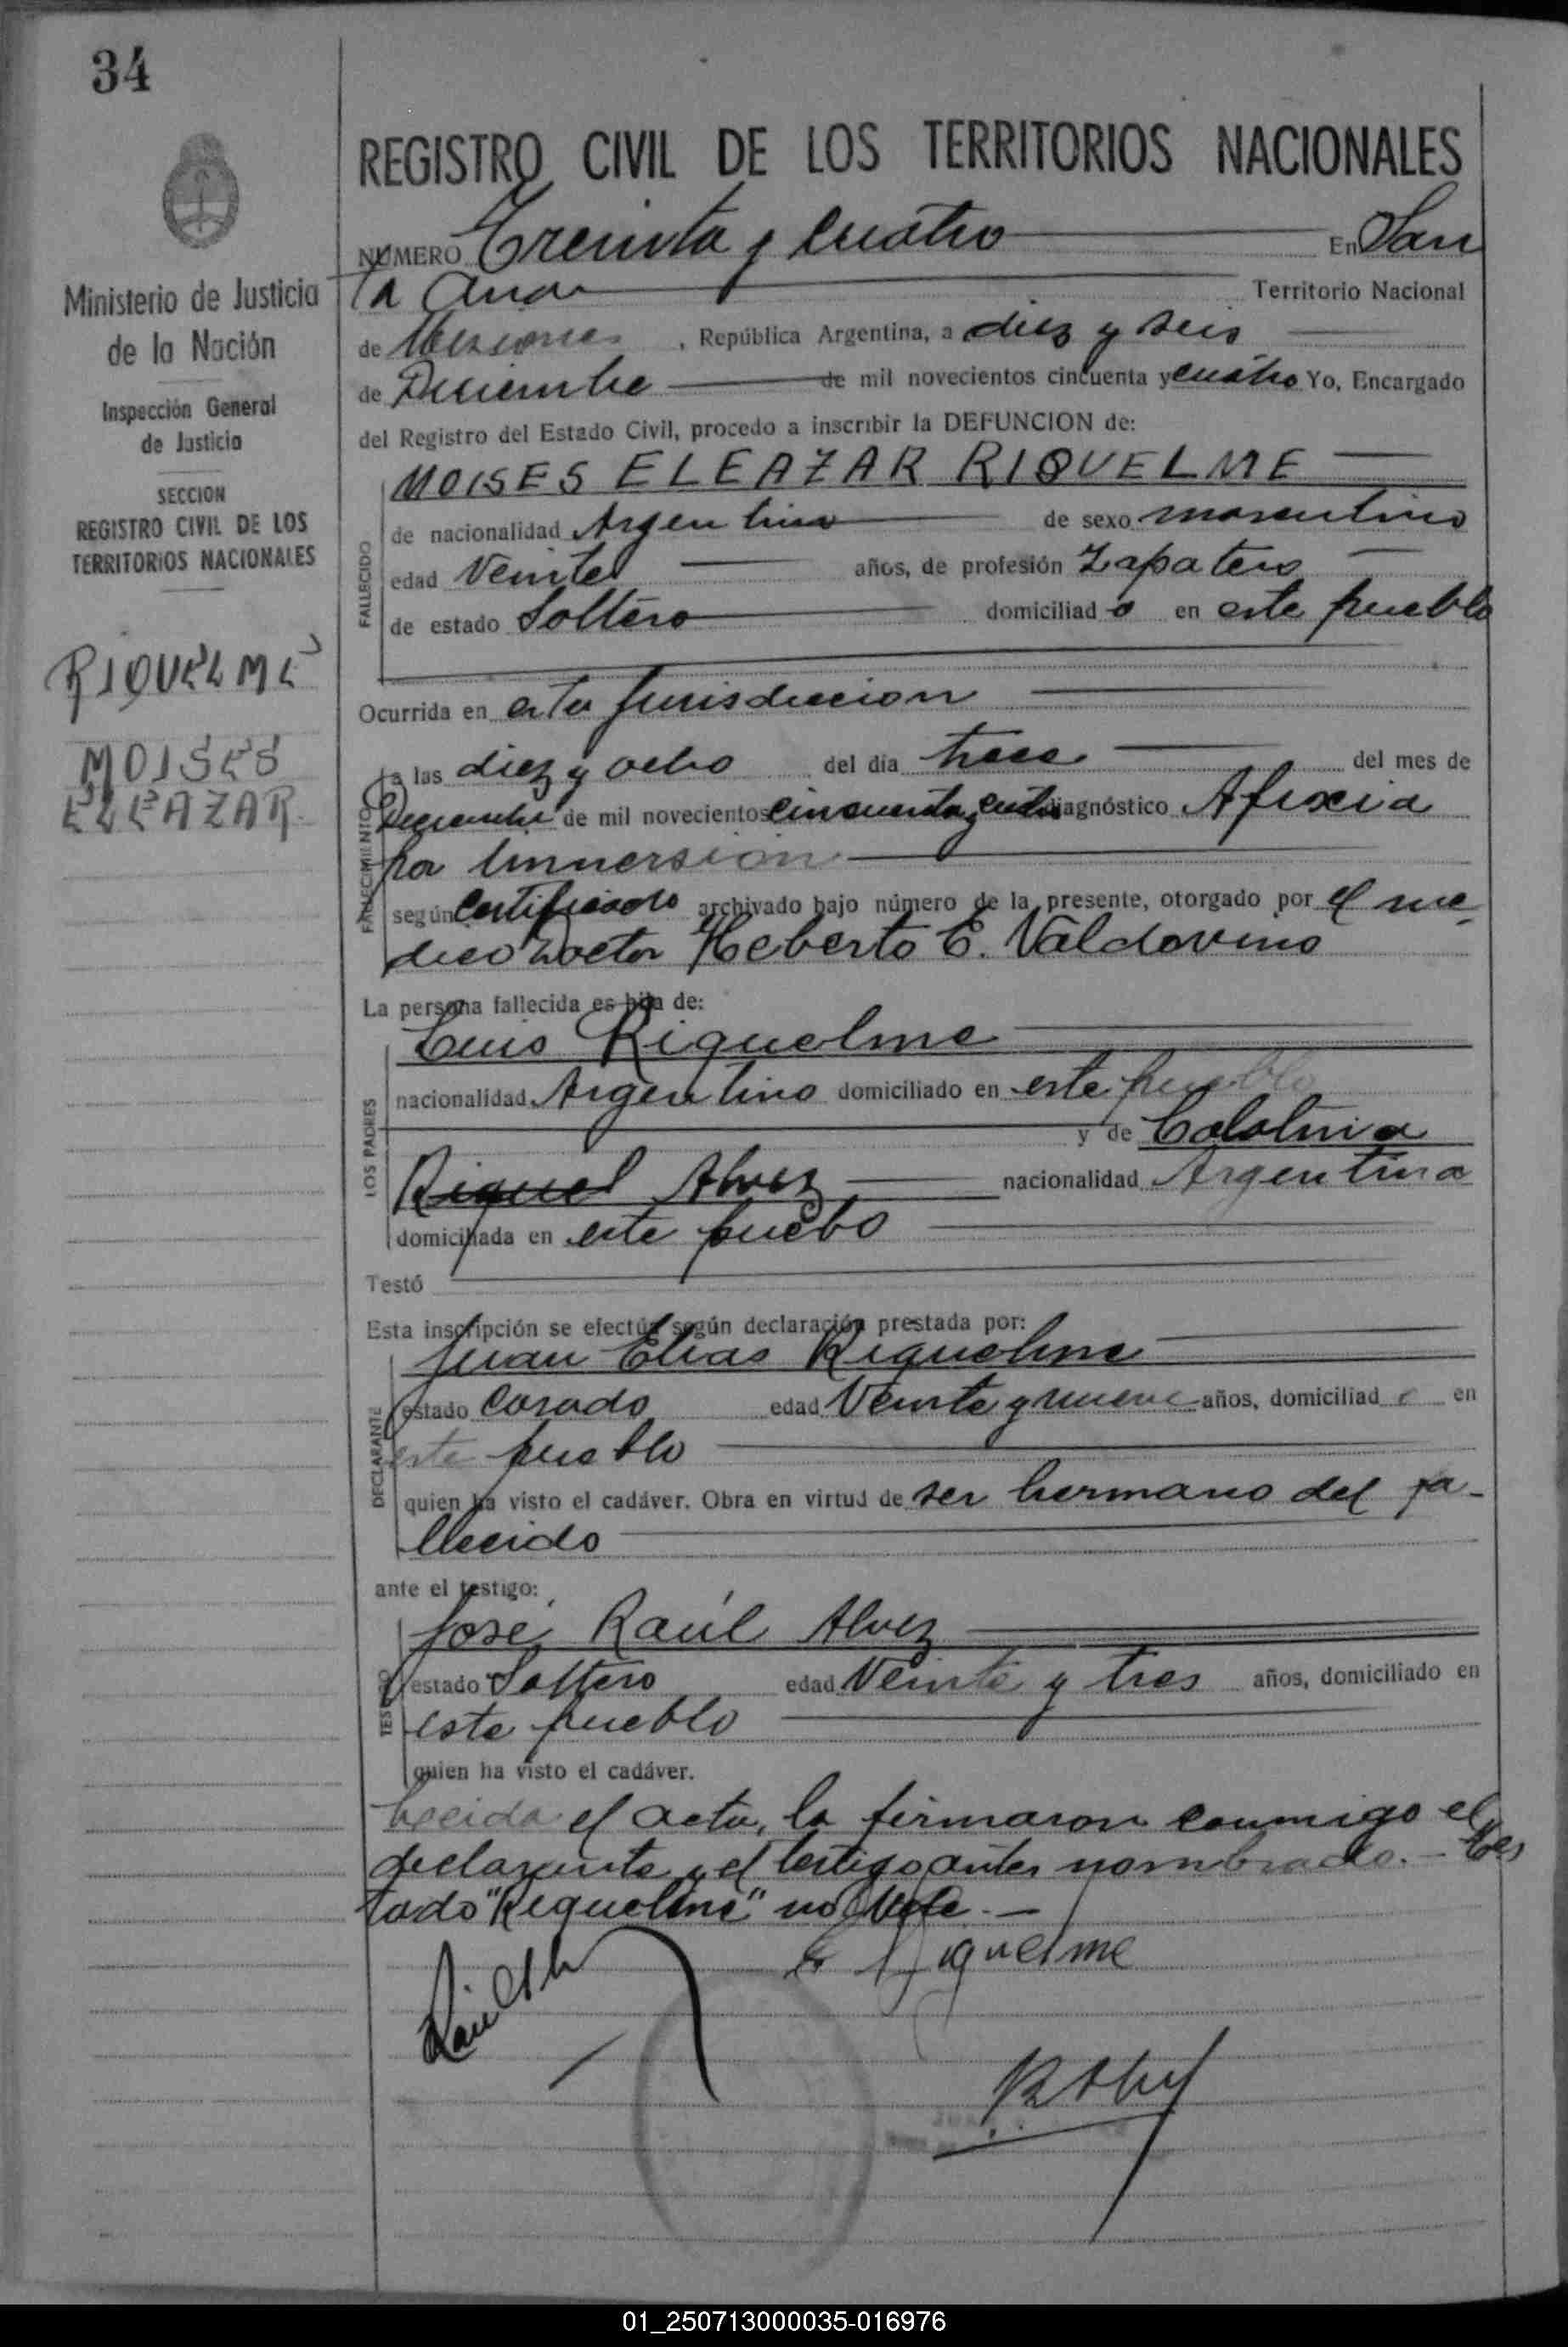 34
REGISTRO CIVIL DE LOS TERRITORIOS NACIONALES
NÚMERO Treinta y cuatro En San
ta Ana Territorio Nacional
de Misiones , República Argentina, a diez y seis
de Diciembre de mil novecientos cincuenta y cuatro Yo, Encargado
del Registro del Estado Civil, procedo a inscribir la DEFUNCION de:
MOISES ELEAZAR RIQUELME
FALLECIDO
de nacionalidad Argentina de sexo masculino
edad Veinte años, de profesión Zapatero
de estado Soltero domiciliad o en este pueblo
Ocurrida en esta Jurisdiccion
a las diez y ocho del día trece del mes de
FALLECIMIENTO
Diciembre de mil novecientos cincuenta y cuatro diagnóstico Afixia
por Inmersion
según Certificado archivado bajo número de la presente, otorgado por el me-
dico Doctor Heberto E. Valdovino
La persona fallecida es hija de:
LOS PADRES
Luis Riquelme
nacionalidad Argentino domiciliado en este pueblo
y de
Riquel Alvez nacionalidad Argentina
domiciliada en este puebo
Testó
Esta inscripción se efectúa según declaración prestada por:
DECLARANTE
Juan Elias Riquelme
estado Casado edad Veinte y nueve años, domiciliad o en
este pueblo
quien ha visto el cadáver. Obra en virtud de ser hermano del fa-
llecido
ante el testigo:
TESTIGO
José Raúl Alvez
estado Soltero edad Veinte y tres años, domiciliado en
este pueblo
quien ha visto el cadáver.
Leeida el acta, la firmaron conmigo el
declarante y el testigo antes nombrado. - Tes
tado "Riquelme" no Vale. -
Riquelme
Ministerio de Justicia
de la Nación
Inspección General
de Justicia
SECCION
REGISTRO CIVIL DE LOS
TERRITORIOS NACIONALES
RIQUELME
MOISES
ELEAZAR
01_250713000035-016976